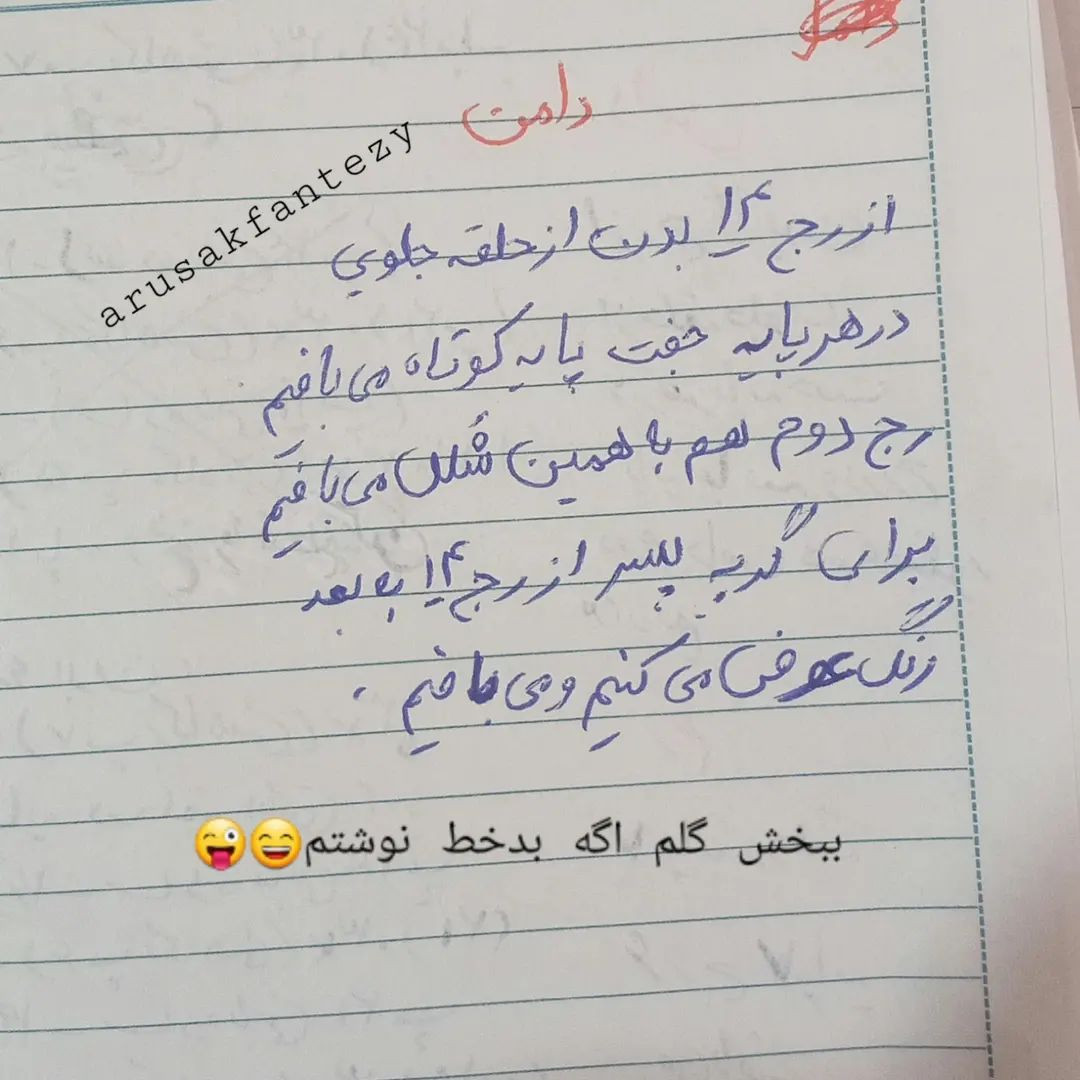 دامن
arusakfantezy
از رج ۱۴ بدن از حلقه جلویی
در هر پایه جفت پایه کوتاه می بافیم
رج دوم هم به همین شکل می بافیم
برای گربه پسر از رج ۱۴ به بعد
رنگ عوض می کنیم و می بافیم .
ببخش گلم اگه بدخط نوشتم😄😜